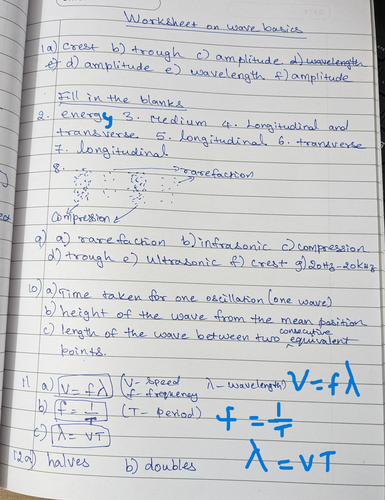 Worksheet on wave basics
1a) crest b) trough c) amplitude d) wavelength
d) amplitude e) wavelength f) amplitude
Fill in the blanks
2. energy 3. Medium 4. Longitudinal and
transverse 5. longitudinal 6. transverse
7. longitudinal
8. rarefaction
Compression
9) a) rarefaction b) infrasonic c) compression
d) trough e) ultrasonic f) crest g) 20Hz-20kHz
10) a) Time taken for one oscillation (one wave)
b) height of the wave from the mean position
c) length of the wave between two consecutive equivalent
points.
11 a) V = fλ (V- speed λ - wavelength) V = fλ
f- frequency
b) f = 1/T (T- period) f = 1/T
c) λ = VT λ = VT
12a) halves b) doubles